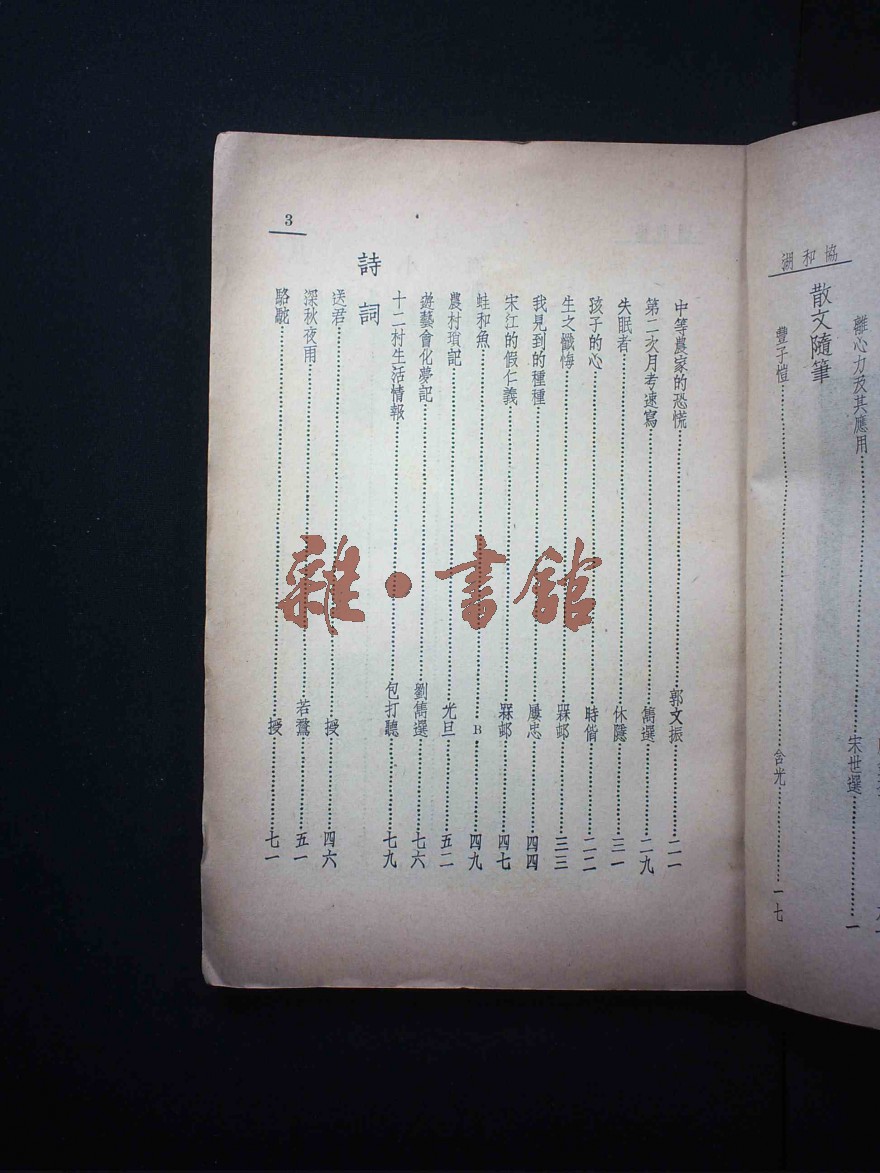 湖和協
離心力及其應用……宋世選……一
散文隨筆
豐子愷……含光……一七
3
中等農家的恐慌……郭文振……二一
第二次月考速寫……雋選……二九
失眠者……休隱……三一
孩子的心……時偕……二二
生之懺悔……槑邨……三三
我見到的種種……屢忠……四四
宋江的假仁義……槑邨……四七
蛙和魚……B……四九
農村瑣記……尤旦……五二
遊藝會化夢記……劉雋選……七六
十二村生活情報……包打聽……七九
詩詞
送君……授……四六
深秋夜雨……若鶩……五一
駱駝……授……七一
雜·書館